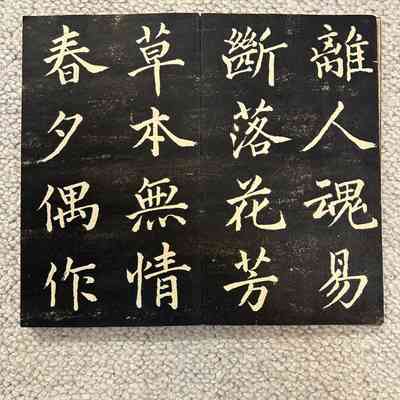 離人魂易
斷落花芳
草本無情
春夕偶作